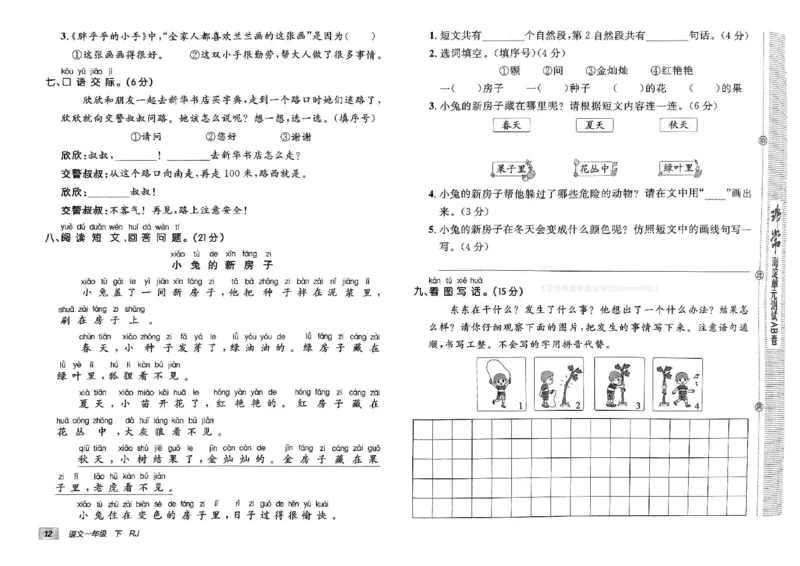 3.《胖乎乎的小手》中,“全家人都喜欢兰兰画的这张画”是因为(　　)
①这张画画得很好。　②这双小手很勤劳,帮大人做了很多事情。
kǒu yǔ jiāo jì
七、口语交际。(6分)
欣欣和朋友一起去新华书店买字典,走到一个路口时她们迷路了,
欣欣就向交警叔叔问路。她该怎么说呢？想一想,选一选。(填序号)
①请问　②您好　③谢谢
欣欣:叔叔,______！______去新华书店怎么走？
交警叔叔:从这个路口向南走,再走100米,路西就是。
欣欣:______叔叔！
交警叔叔:不客气！再见,路上注意安全！
yuè dú duǎn wén huí dá wèn tí
八、阅读短文,回答问题。(21分)
xiǎo tù de xīn fáng zi
小兔的新房子
xiǎo tù gài le yì jiān xīn fáng zi tā bǎ zhǒng zi bàn zài ní jiāng lǐ
小兔盖了一间新房子,他把种子拌在泥浆里,
shuā zài fáng zi shàng
刷在房子上。
chūn tiān xiǎo zhǒng zi fā yá le lǜ yóu yóu de lǜ fáng zi cáng zài
春天,小种子发芽了,绿油油的。绿房子藏在
lǜ yè lǐ hú li kàn bú jiàn
绿叶里,狐狸看不见。
xià tiān xiǎo miáo kāi huā le hóng yàn yàn de hóng fáng zi cáng zài
夏天,小苗开花了,红艳艳的。红房子藏在
huā cóng zhōng dà huī láng kàn bú jiàn
花丛中,大灰狼看不见。
qiū tiān xiǎo shù jiē guǒ le jīn càn càn de jīn fáng zi cáng zài guǒ
秋天,小树结果了,金灿灿的。金房子藏在果
zi lǐ lǎo hǔ kàn bú jiàn
子里,老虎看不见。
xiǎo tù zhù zài biàn sè de fáng zi lǐ rì zi guò de hěn yú kuài
小兔住在变色的房子里,日子过得很愉快。
12　语文一年级　下　RJ
1.短文共有______个自然段,第2自然段共有______句话。(4分)
2.选词填空。(填序号)(4分)
①颗　②间　③金灿灿　④红艳艳
一(　　)房子　一(　　)种子　(　　)的花　(　　)的果
3.小兔的新房子藏在哪里呢？请根据短文内容连一连。(6分)
春天　夏天　秋天
果子里　花丛中　绿叶里
4.小兔的新房帮他躲过了哪些危险的动物？请在文中用“____”画出
来。(3分)
5.小兔的新房子在冬天会变成什么颜色呢？仿照短文中的画线句写一
写。(4分)
kàn tú xiě huà
九、看图写话。(15分)
东东在干什么？发生了什么事？他想出了一个什么办法？结果怎
么样？请你仔细观察下面的图片,把发生的事情写下来。注意语句通
顺,书写工整。不会写的字用拼音代替。
1　2　3　4
海淀单元测试AB卷